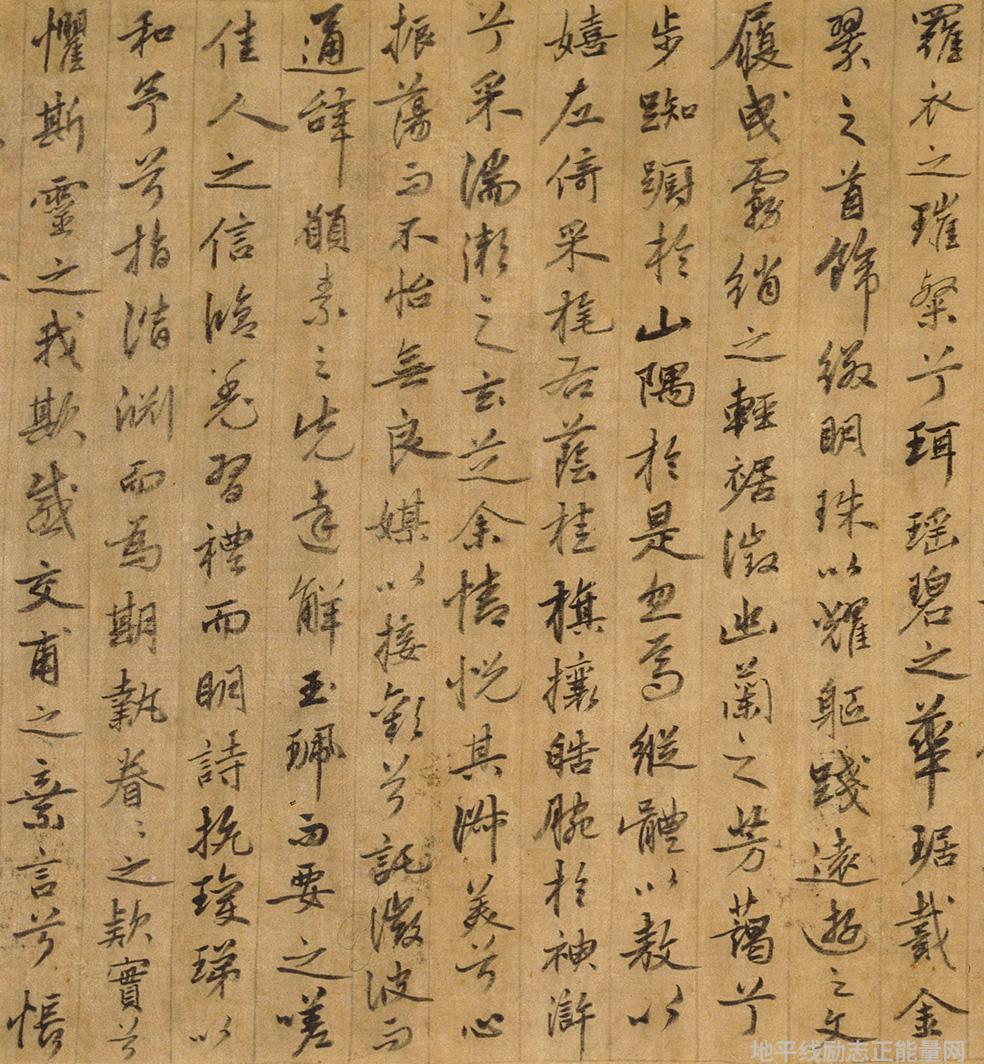 羅衣之璀粲兮珥瑤碧之華琚戴金
翠之首飾綴明珠以耀軀踐遠遊之文
履曳霧綃之輕裾微幽蘭之芳藹兮
步踟躕於山隅於是忽焉縱體以敖以
嬉左倚采旄右蔭桂旗攘皓腕於神滸
兮采湍瀨之玄芝余情悅其淑美兮心
振蕩而不怡無良媒以接歡兮託微波而
通辭願素之先達解玉珮而要之嗟
佳人之信脩羌習禮而明詩抗瓊珶以
和予兮指潛淵而為期執眷〻之款實兮
懼斯靈之我欺感交甫之棄言兮悵
地平线励志正能量网